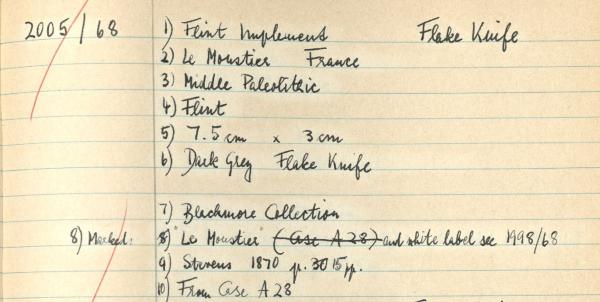 2005/68 1) Flint Implement Flake Knife
2) Le Moustier France
3) Middle Paleolithic
4) Flint
5) 7.5 cm x 3 cm
6) Dark Grey Flake Knife
7) Blackmore Collection
8) Marked: 8) "Le Moustier" (Case A 28) and white label see 1998/68
9) Stevens 1870 p. 30 15 pp.
10) From Case A 28